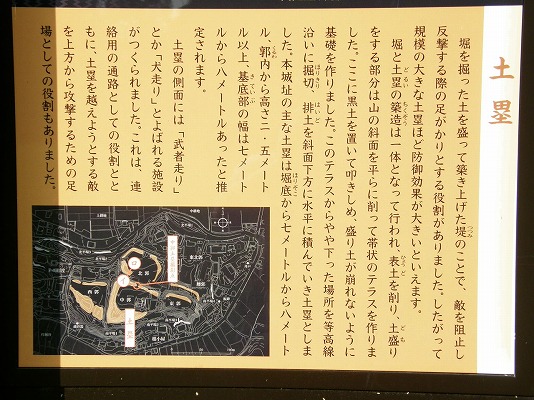 土塁
堀を掘った土を盛って築き上げた堤のことで、敵を阻止し
反撃する際の足がかりとする役割がありました。したがって
規模の大きな土塁ほど防御効果が大きいといえます。
堀と土塁の築造は一体となって行われ、表土を削り、土盛り
をする部分は山の斜面を平らに削って帯状のテラスを作りま
した。ここに黒土を置いて叩きしめ、盛り土が崩れないように
基礎を作りました。このテラスからやや下った場所を等高線
沿いに掘切、排土を斜面下方に水平に積んでいき土塁としま
した。本城址の主な土塁は堀底から七メートルから八メート
ル、郭内から高さ二・五メート
ル以上、基底部の幅は七メート
ルから八メートルあったと推
定されます。
土塁の側面には「武者走り」
とか「犬走り」とよばれる施設
がつくられました。これは、連
絡用の通路としての役割とと
もに、土塁を越えようとする敵
を上方から攻撃するための足
場としての役割もありました。
北郭
東北郭
西郭
中郭
東郭